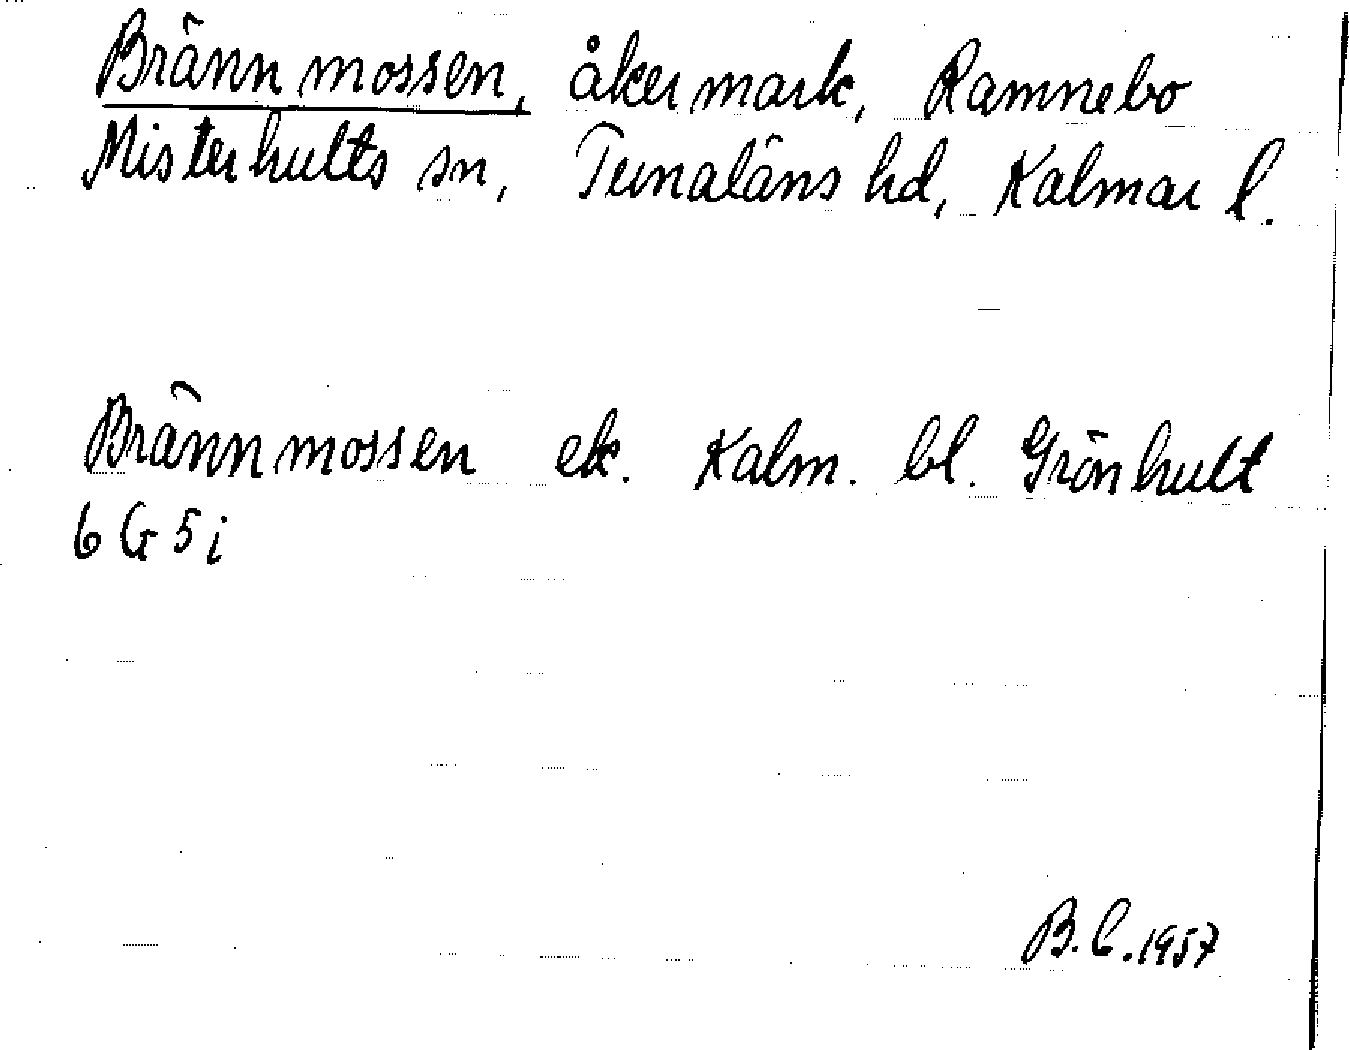 Brännmossen, åkermark, Ramnebo
Misterhults sn, Tunaläns hd, Kalmar l.
Brännmossen ek. Kalm. bl. Grönhult
6 G 5 i
B. C. 1957